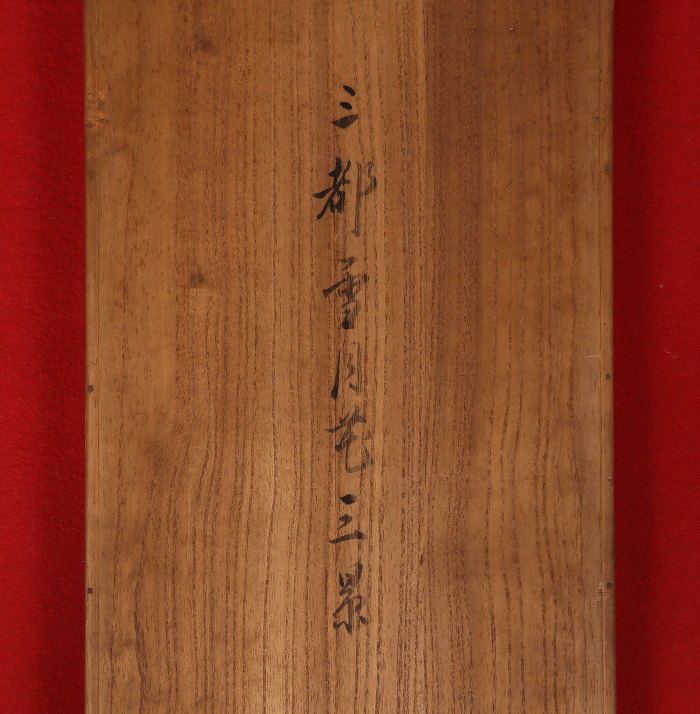 三都雪月花三景